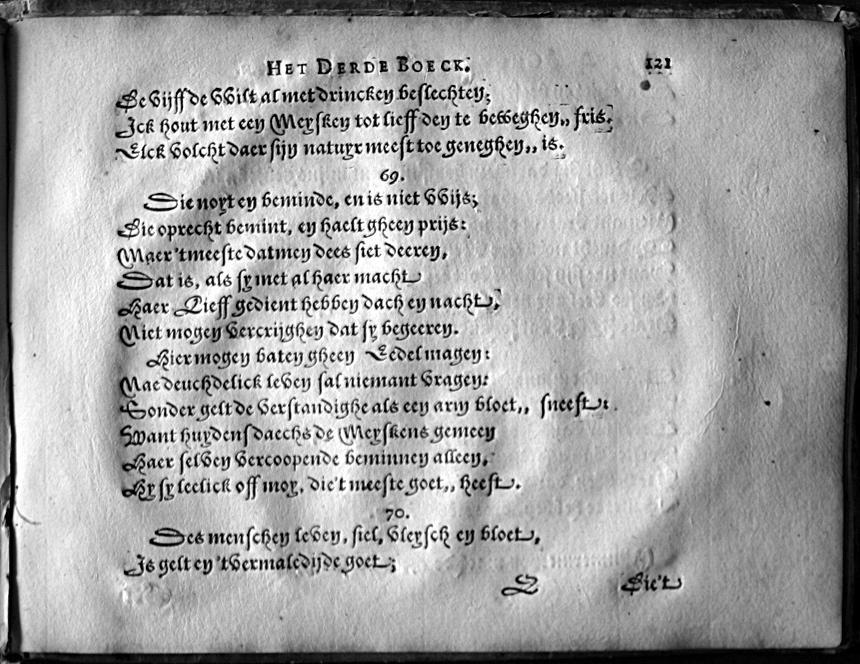 HET DERDE BOECK. 121
De vijff de wilt al met drincken beslechten;
Ick hout met een Meysken tot lieff den te beweghen,, fris.
Elck volcht daer sijn natuyr meest toe geneghen,, is.
69.
Die noyt en beminde, en is niet wijs;
Die oprecht bemint, en haelt gheen prijs:
Maer 'tmeeste datmen dees siet deeren,
Dat is, als sy met al haer macht
Haer Lieff gedient hebben dach en nacht,
Niet mogen vercrijghen dat sy begeeren.
Hier mogen baten gheen Eedel magen:
Nae deuchdelick leven sal niemant vragen:
Sonder gelt de verstandighe als een arm bloet,, sneest:
Want huydensdaechs de Meyskens gemeen
Haer selven vercoopende beminnen alleen,
Hy sy leelick off moy, die't meeste goet,, heest.
70.
Des menschen leven, siel, vleysch en bloet,
Is gelt en 'tvermaledijde goet;
Q Die't